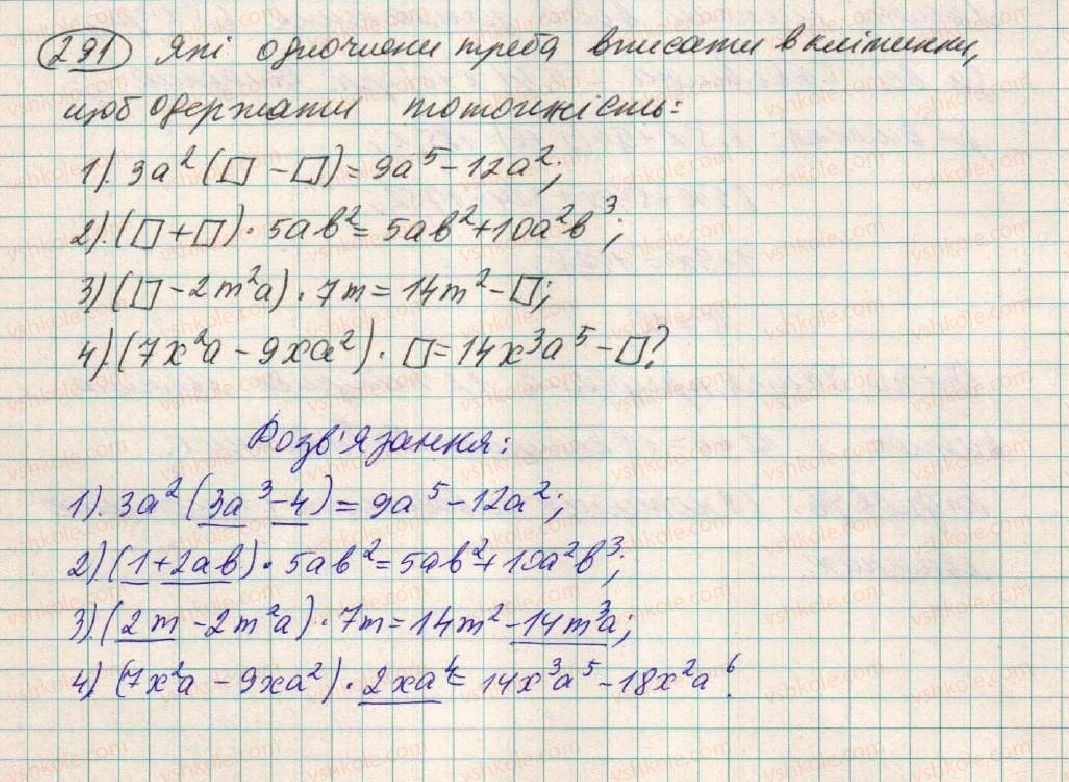 291 Які одночлени треба вписати в клітинки,
щоб одержати тотожність:
1). 3a²(□ - □) = 9a⁵ - 12a²;
2). (□ + □) · 5ab² = 5ab² + 10a²b³;
3) (□ - 2m²a) · 7m = 14m² - □;
4) (7x²a - 9xa²) · □ = 14x³a⁵ - □?
Розв'язання:
1). 3a²(3a³ - 4) = 9a⁵ - 12a²;
2) (1 + 2ab) · 5ab² = 5ab² + 10a²b³;
3) (2m - 2m²a) · 7m = 14m² - 14m³a;
4) (7x²a - 9xa²) · 2xa⁴ = 14x³a⁵ - 18x²a⁶.